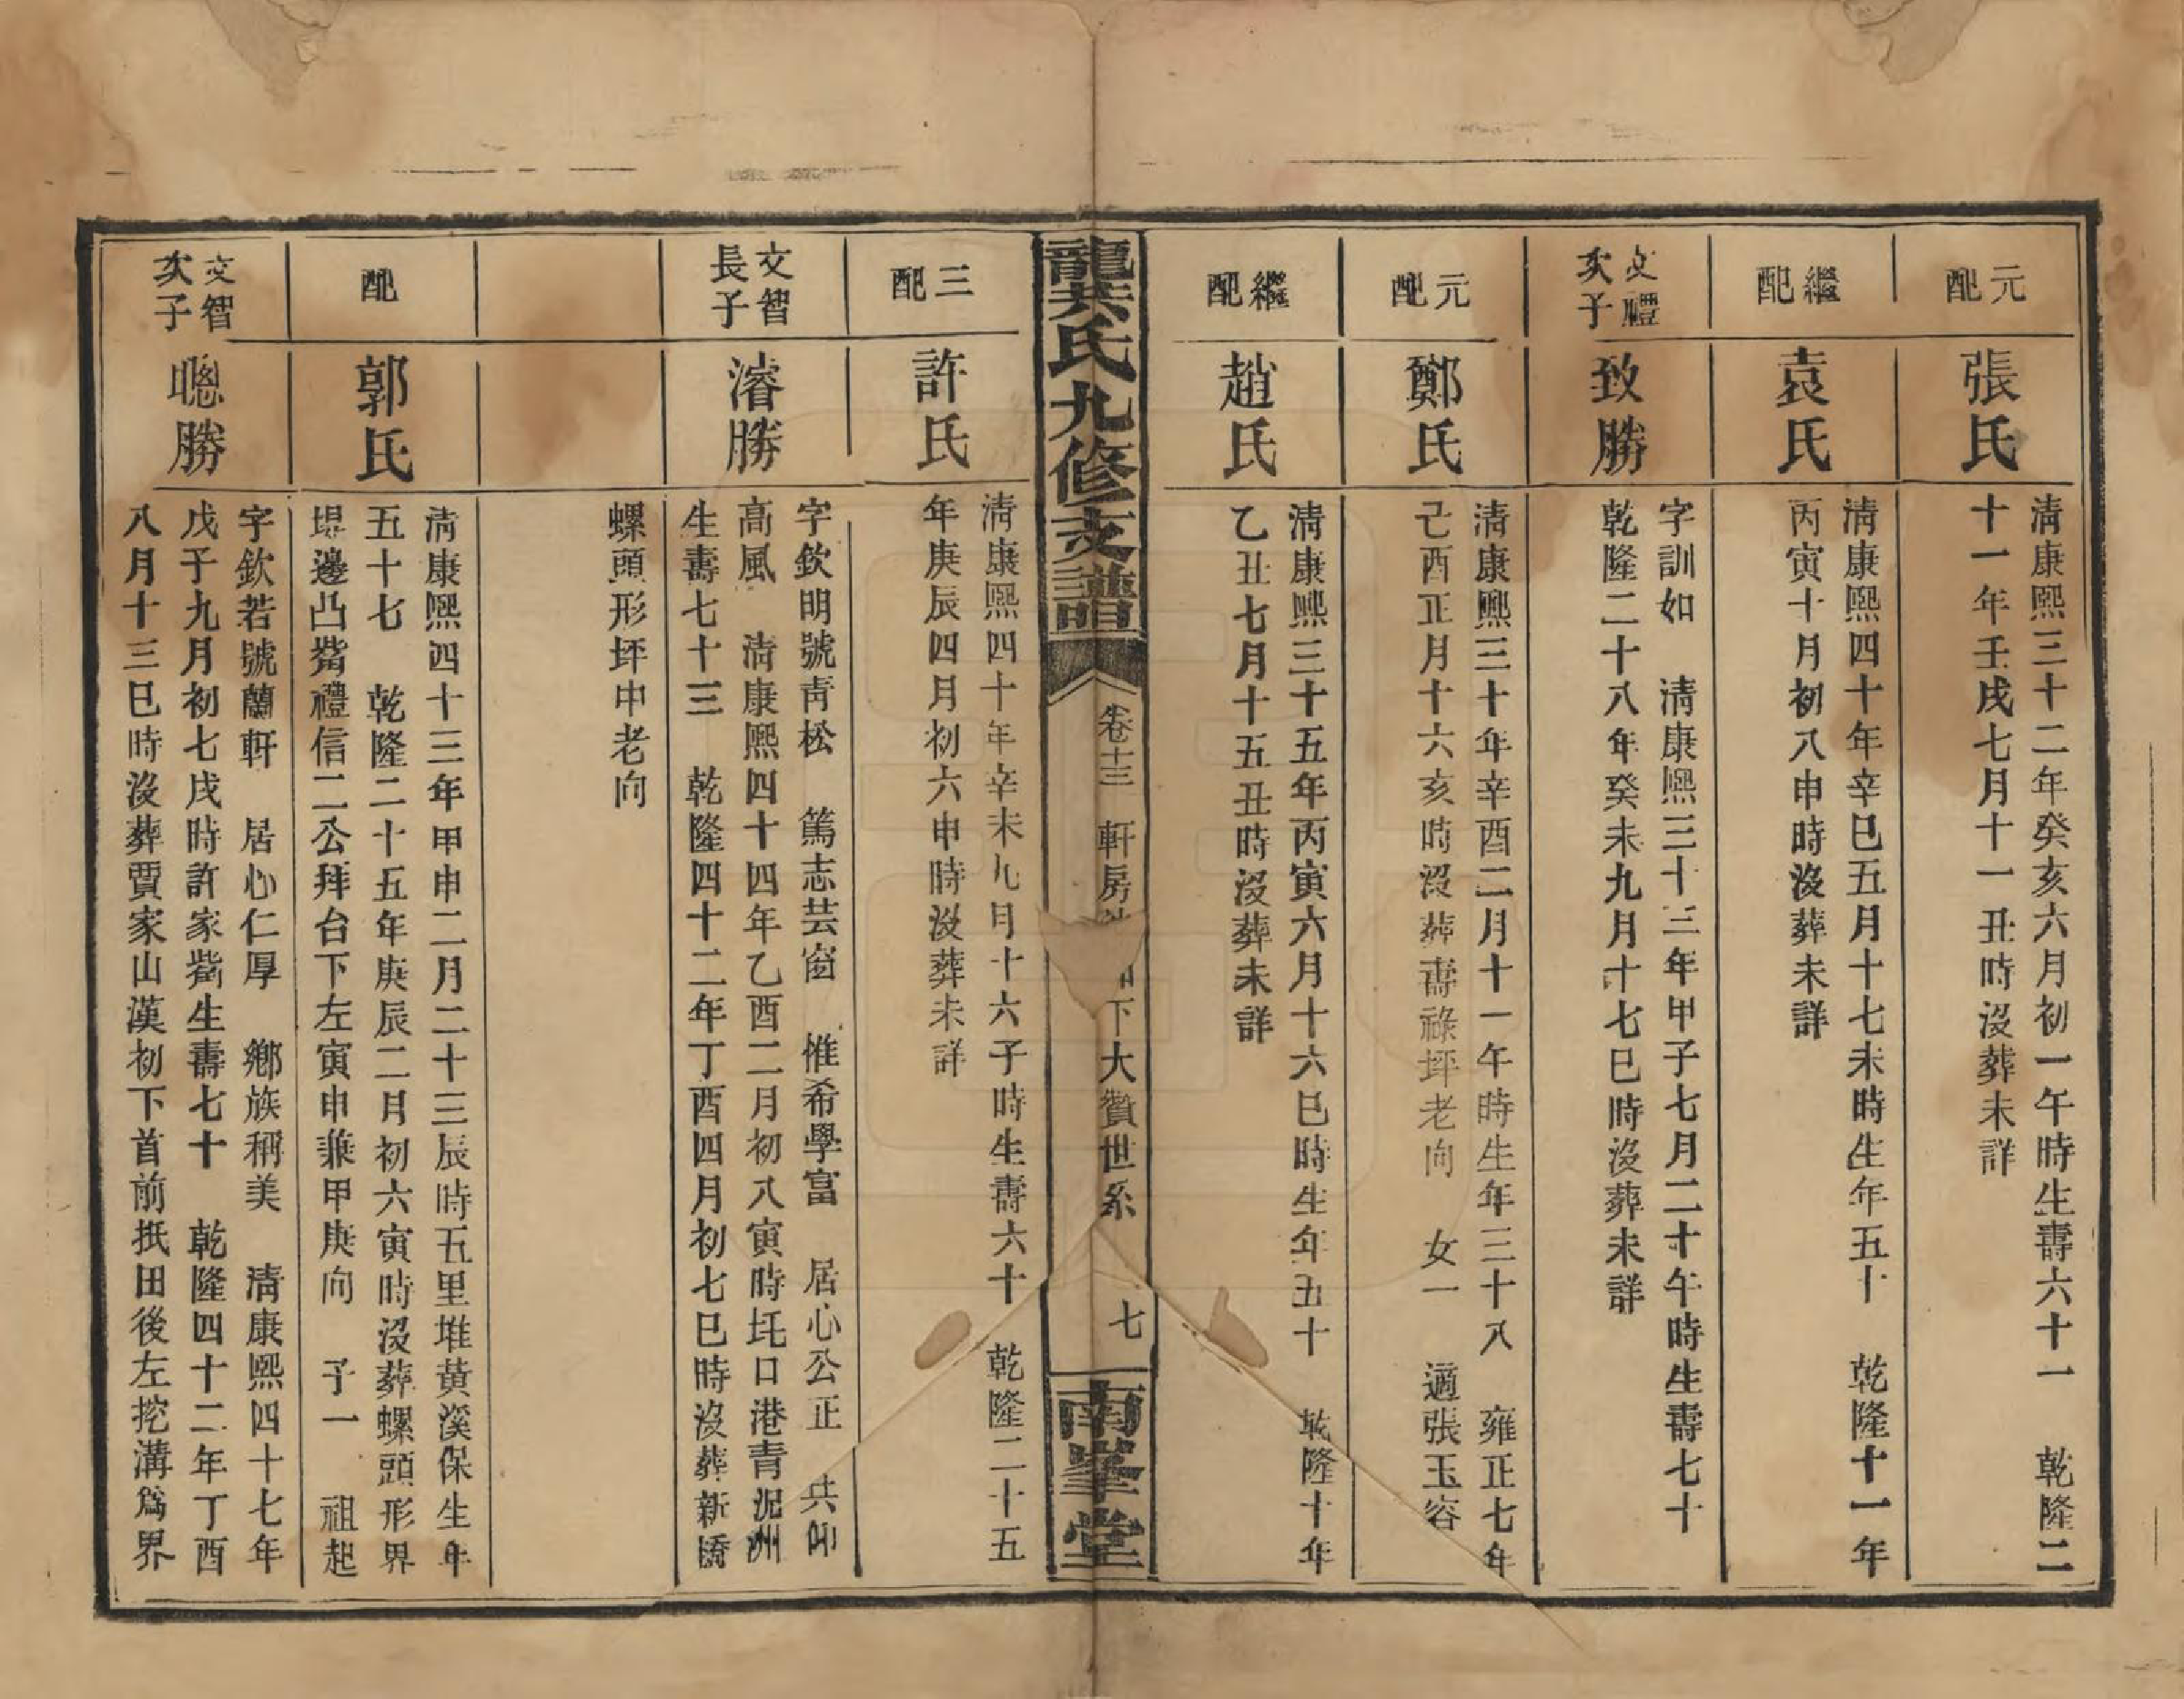 元配
張氏
清康熙三十二年癸亥六月初一午時生壽六十一　乾隆二
十一年壬戌七月十一丑時沒葬未詳
繼配
袁氏
清康熙四十年辛巳五月十七未時生年五十　乾隆十一年
丙寅十月初八申時沒葬未詳
文禮
次子
致勝
字訓如　清康熙三十三年甲子七月二十午時生壽七十
乾隆二十八年癸未九月十七巳時沒葬未詳
元配
鄭氏
清康熙三十年辛酉二月十一午時生年三十八　雍正七年
己酉正月十六亥時沒葬壽祿坪老向　女一　適張玉容
繼配
趙氏
清康熙三十五年丙寅六月十六巳時生年五十　乾隆十年
乙丑七月十五丑時沒葬未詳
龔氏九修支譜
卷十三　軒房　下大贊世系　七
南峯堂
三配
許氏
清康熙四十年辛未九月十六子時生壽六十　乾隆二十五
年庚辰四月初六申時沒葬未詳
文智
長子
濬勝
字欽明號靑松　篤志芸窗　惟希學富　居心公正　共仰
高風　清康熙四十四年乙酉二月初八寅時圫口港青泥洲
生壽七十三　乾隆四十二年丁酉四月初七巳時沒葬新橋
螺頭形坪中老向
配
郭氏
清康熙四十三年甲申二月二十三辰時五里堆黃溪保生年
五十七　乾隆二十五年庚辰二月初六寅時沒葬螺頭形界
堤邊凸嘴禮信二公拜台下左寅申兼甲庚向　子一　祖起
文智
次子
聰勝
字欽若號蘭軒　居心仁厚　鄉族稱美　清康熙四十七年
戊子九月初七戌時許家嘴生壽七十　乾隆四十二年丁酉
八月十三巳時沒葬賈家山漢初下首前抵田後左挖溝爲界